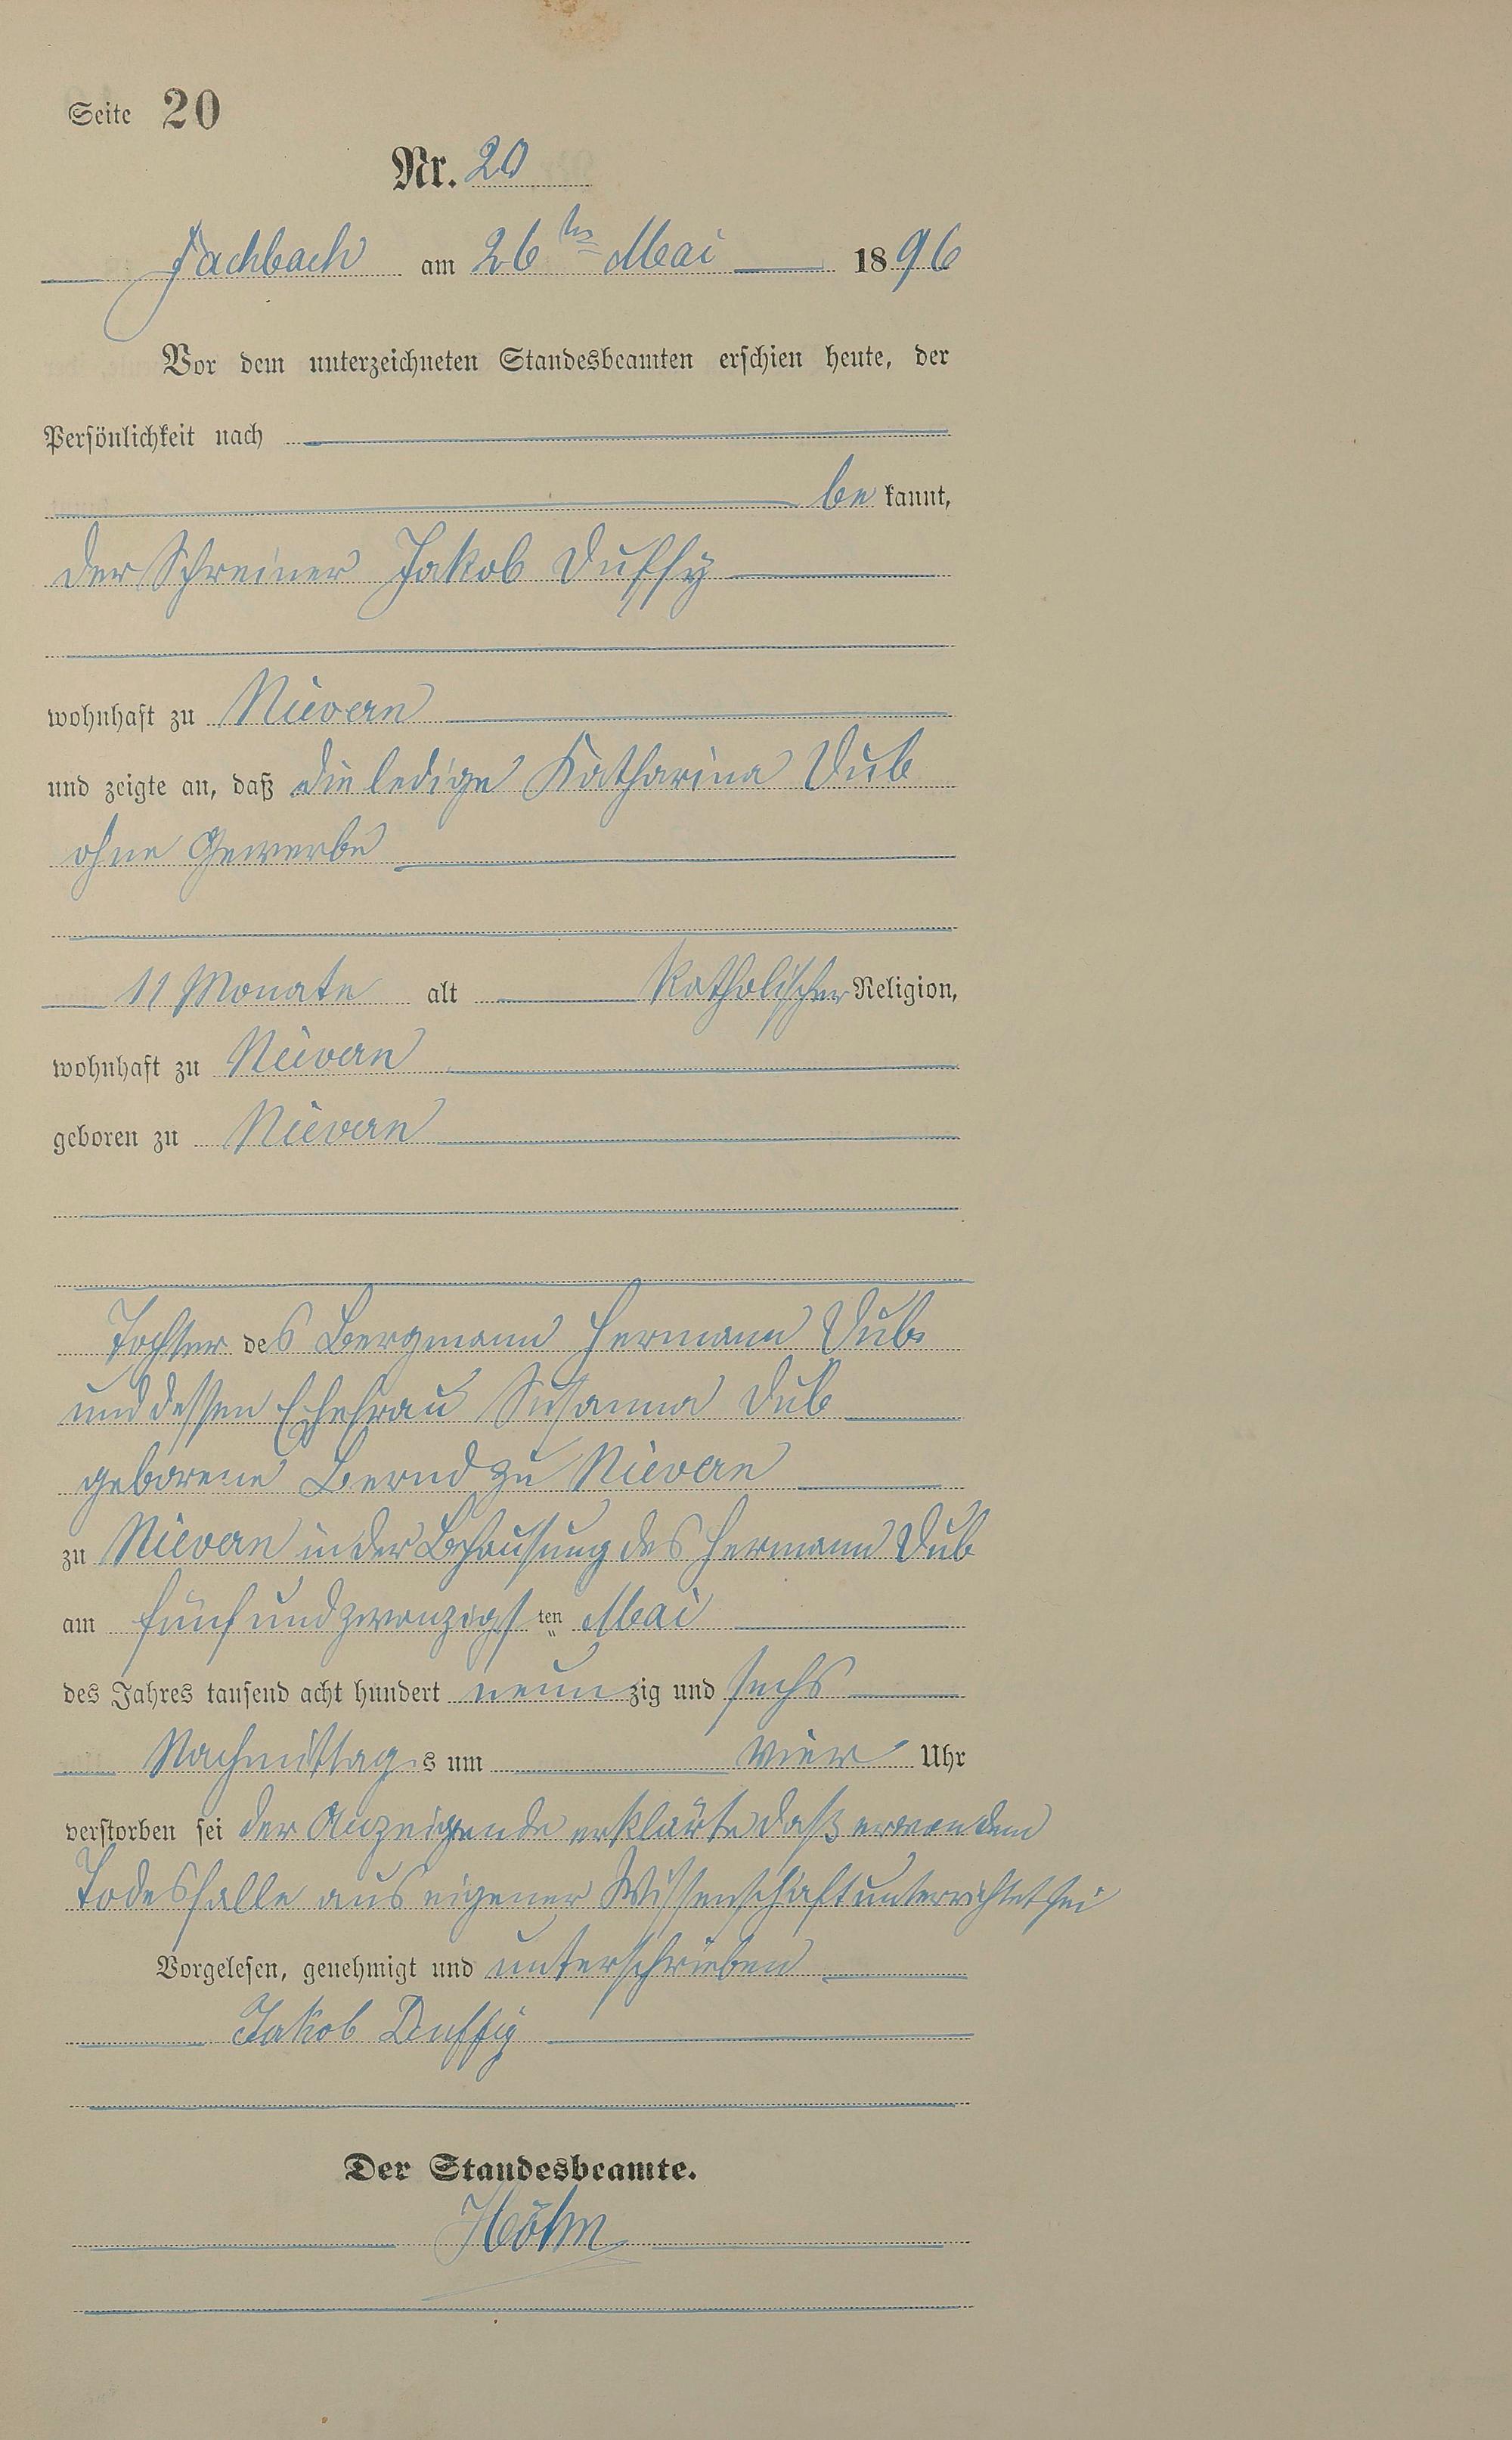 Seite 20
Nr. 20
Fachbach am 26ten Mai 1896
Vor dem unterzeichneten Standesbeamten erschien heute, der
Persönlichkeit nach
be kannt,
der Schreiner Jakob Duffy
wohnhaft zu Nievern
und zeigte an, daß die ledige Katharina Dub
ohne Gewerbe
11 Monate alt katholischer Religion,
wohnhaft zu Nievern
geboren zu Nievern
Tochter des Bergmann Hermann Dub
und dessen Ehefrau Susanna Dub
geborene Bernd zu Nievern
zu Nievern in der Behausung des Hermann Dub
am fünfundzwanzigsten Mai
des Jahres tausend acht hundert neunzig und sechs
Nachmittags um vier Uhr
verstorben sei der Anzeigende erklärte daß er von dem
Todesfalle aus eigener Wissenschaft unterrichtet sei
Vorgelesen, genehmigt und unterschrieben
Jakob Duffy
Der Standesbeamte.
Höhn